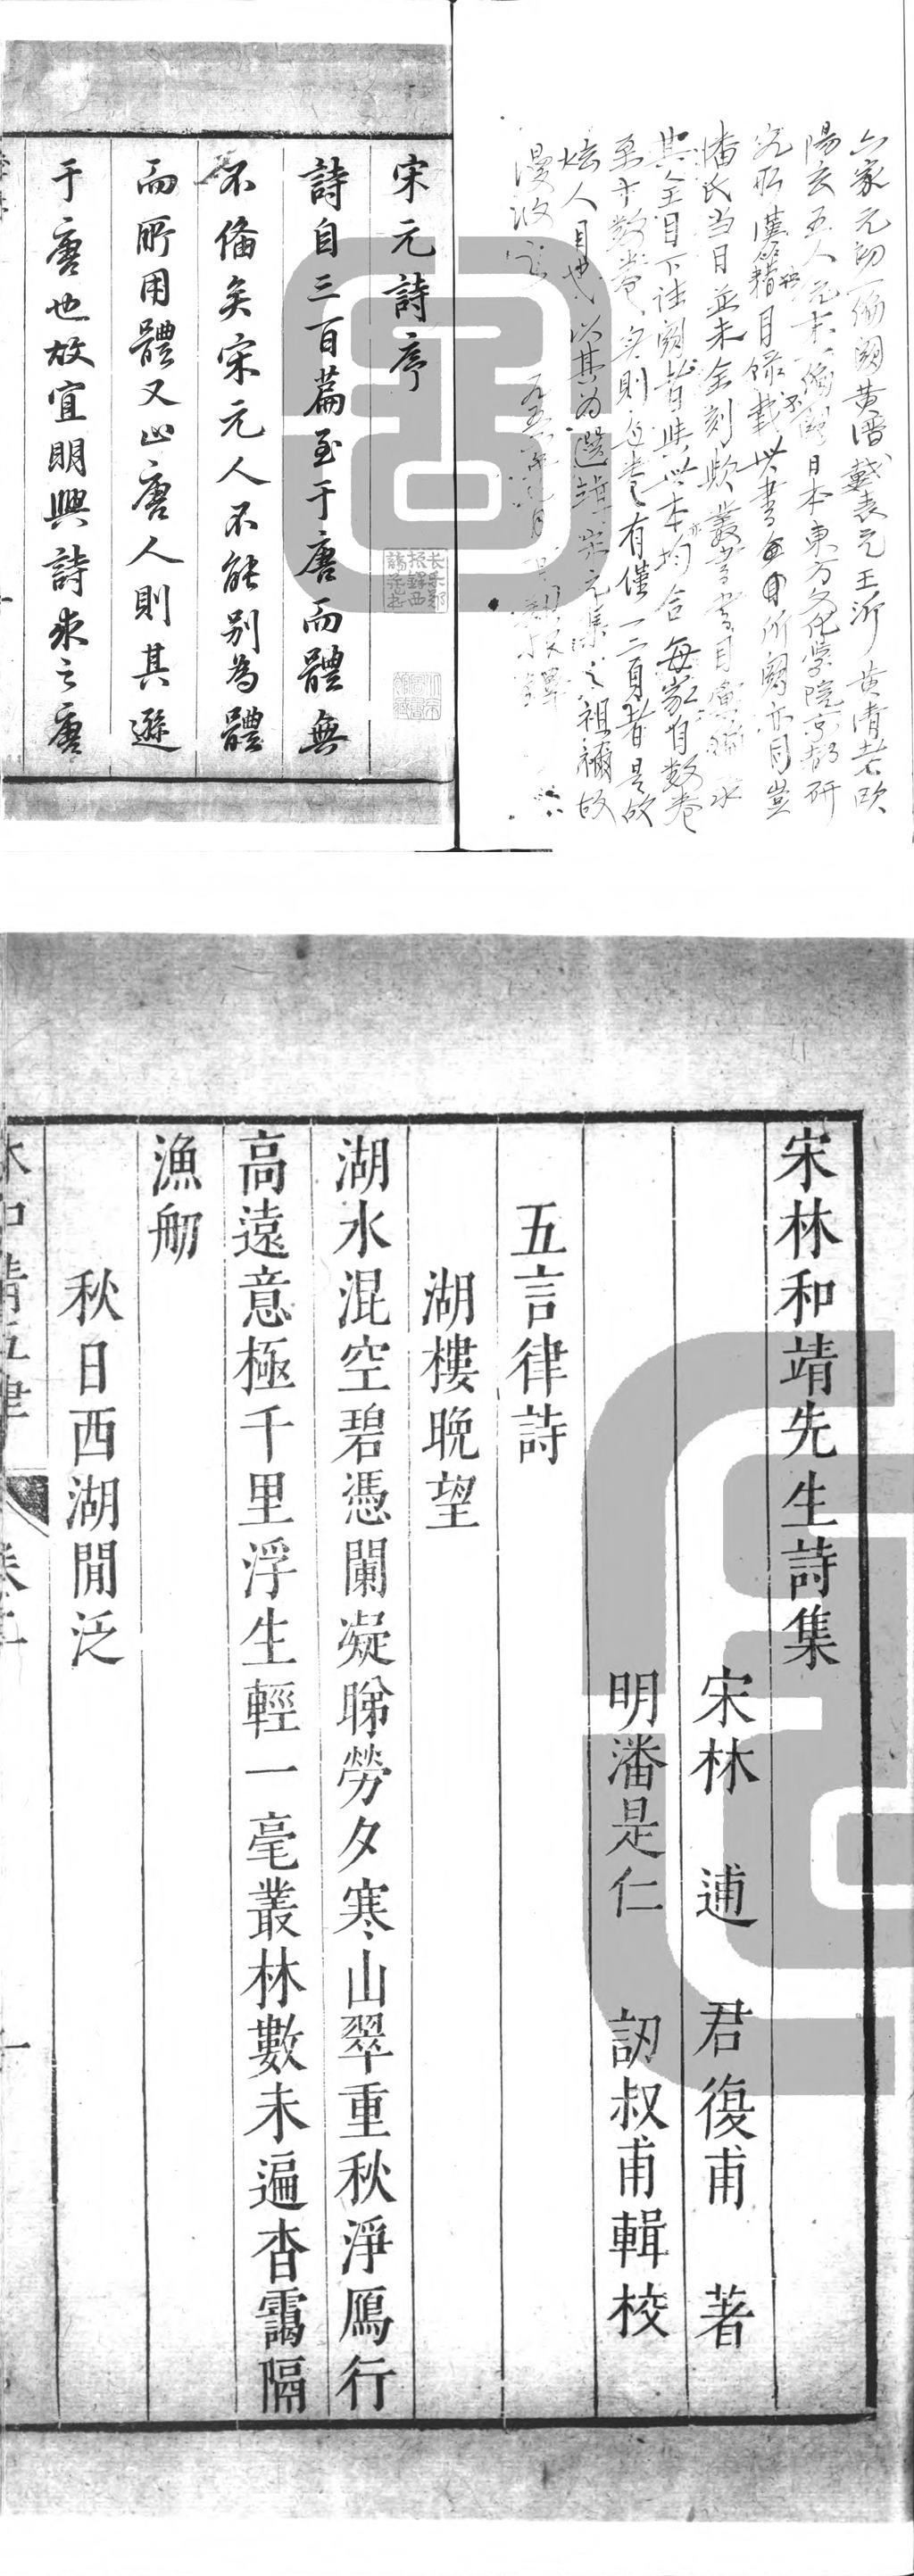 六家元初一倫闕黄溍戴表元王沂黄清老歐
陽玄五人元末倫不闕日本東方文化學院京都研
究所漢籍目録載此書目所闕亦同豈
潘氏当日並未全刻歟叢書書目
其全目下注闕者與此本均合每家有數卷
至十數卷者則每卷有僅一二頁者是故
炫人目也以其為選輯宋元集之祖禰故
漫收之
宋元詩序
詩自三百篇至于唐而體無
不備矣宋元人不能别為體
而所用體又止唐人則其遜
于唐也故宜明興詩求之唐
宋林和靖先生詩集
宋林逋君復甫著
明潘是仁訒叔甫輯校
五言律詩
湖樓晩望
湖水混空碧憑闌凝睇勞夕寒山翠重秋淨鴈行
高遠意極千里浮生輕一毫叢林數未遍杳靄隔
漁舠
秋日西湖閒泛